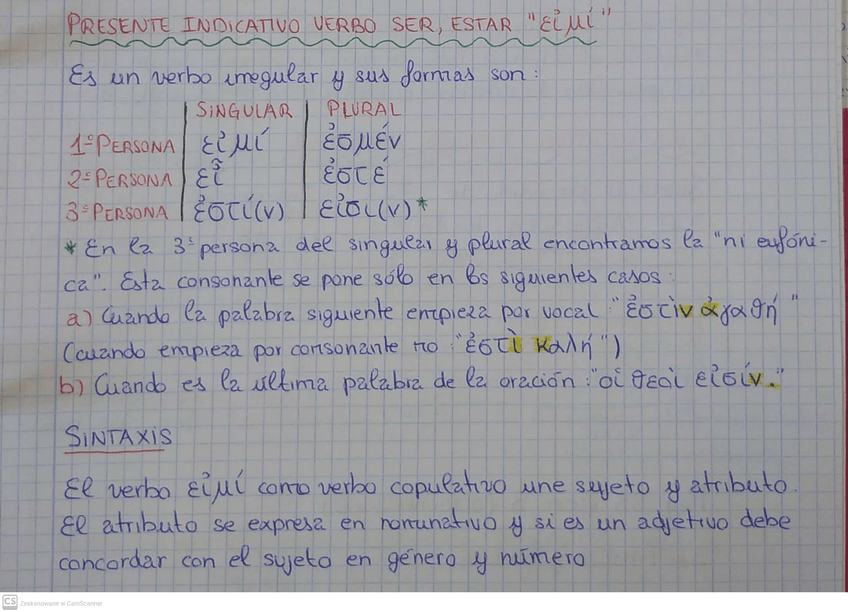 PRESENTE INDICATIVO VERBO SER, ESTAR "εἰμί"
Es un verbo irregular y sus formas son:
SINGULAR PLURAL
1ª PERSONA εἰμί ἐσμέν
2ª PERSONA εἶ ἐστέ
3ª PERSONA ἐστί(ν) εἰσι(ν)*
* En la 3ª persona del singular y plural encontramos la "ni eufóni-
ca". Esta consonante se pone sólo en los siguientes casos:
a) Cuando la palabra siguiente empieza por vocal "ἐστὶν ἀγαθή"
(cuando empieza por consonante no: "ἐστὶ καλή")
b) Cuando es la última palabra de la oración: "οἱ θεοὶ εἰσίν."
SINTAXIS
El verbo εἰμί como verbo copulativo une sujeto y atributo.
El atributo se expresa en nominativo y si es un adjetivo debe
concordar con el sujeto en género y número
CS Zeskanowane w CamScanner